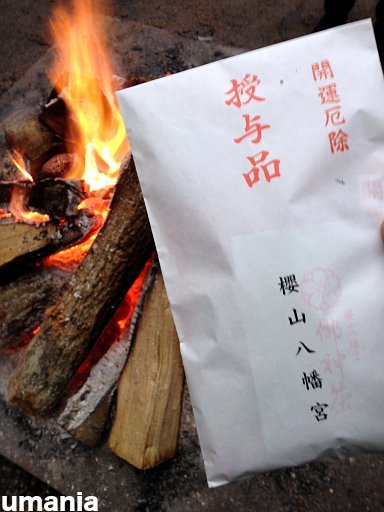 開運厄除
授与品
櫻山八幡宮
御神茶
umania